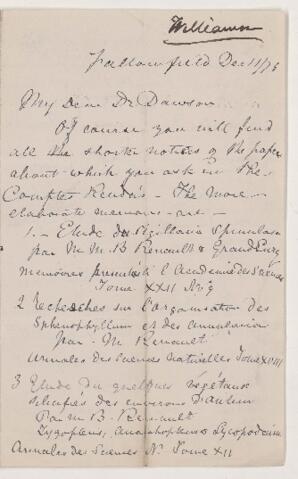 Williamson
Fallowfield Dec 11/76
My Dear Dr Dawson
Of course you will find
all the shorter notices of the papers
about which you ask in the
Comptes Rendus - The more
elaborate memoirs - are -
1. - Etude du Sigillaria Spinulosa
par M. M. B Renault & Grand'Eury
Memoires presentés à l'Academie des Sciences
Tome XXII No 9
2 Recherches sur l'organisation des
Sphenophyllum et des Annularia
par M. Renault
Annales des Sciences naturelles Tome XVIII
3 Etude du quelques végétaux
silicifiés des environs D'autun
Par M B. Renault
Zygopteris, Anachoropteris & Lycopodium
Annales des Sciences N. Tome XII